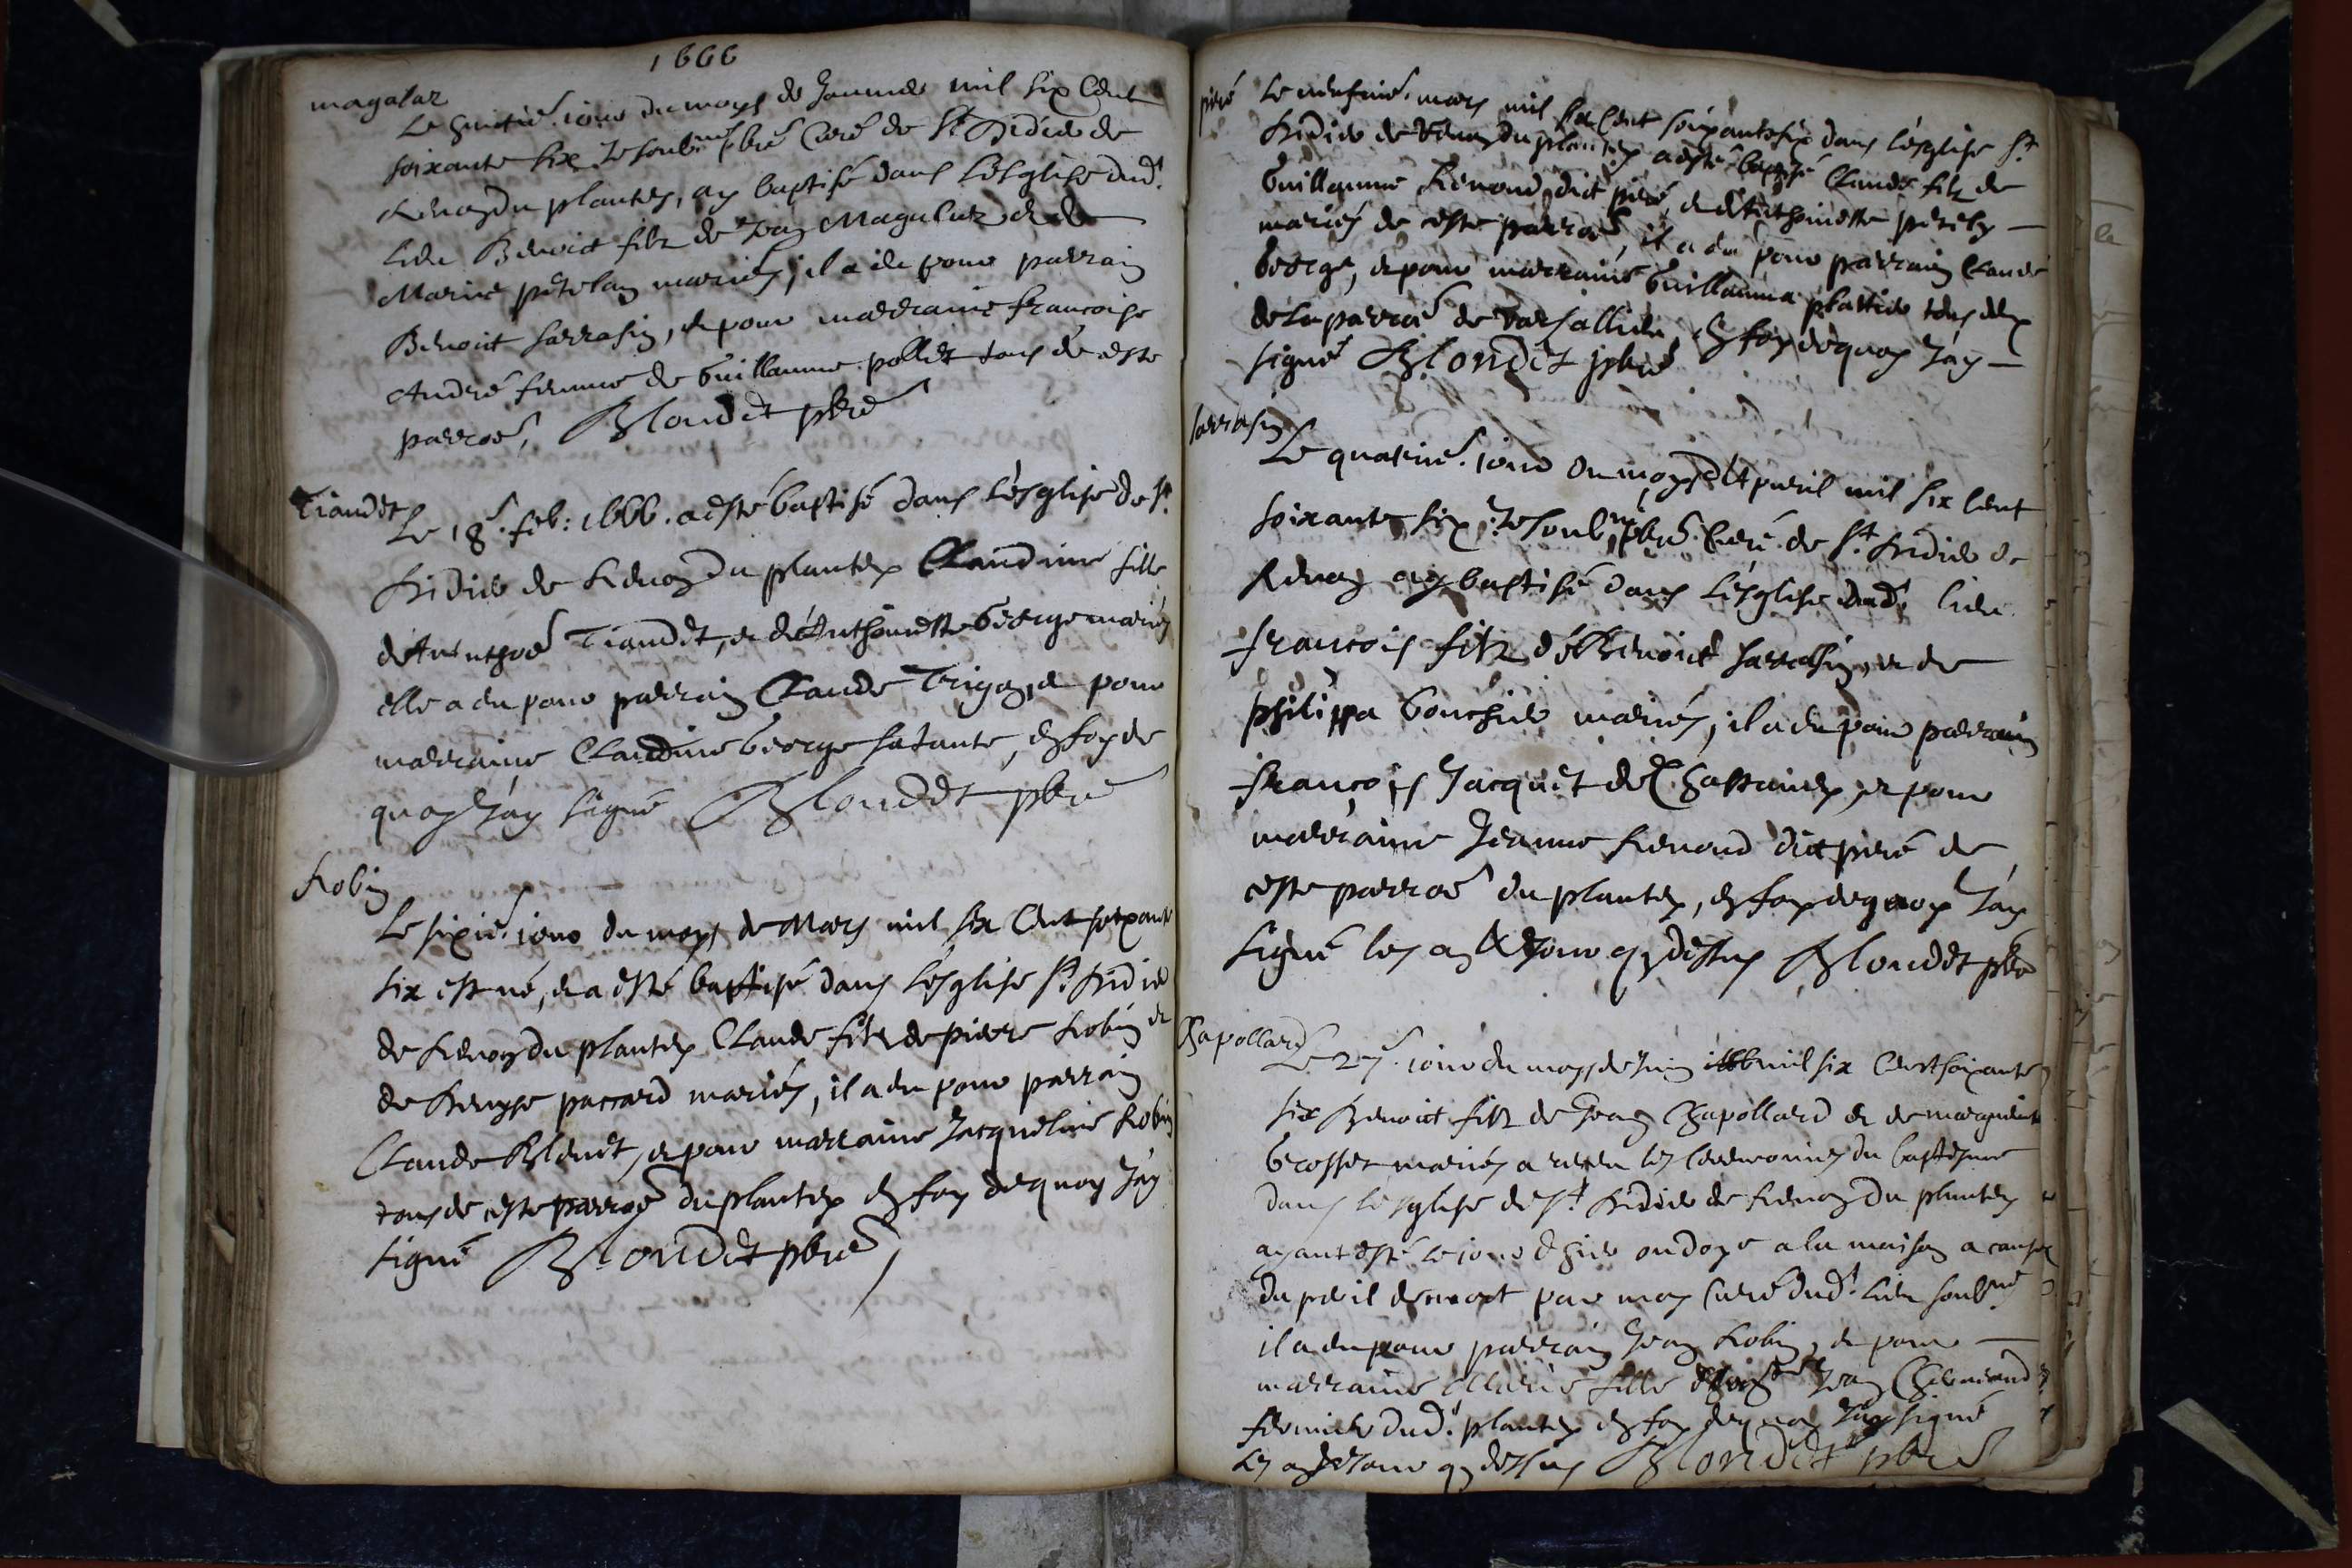 1666
magalar
Le huictie. iour du moys de Januie mil six Cent
soixante six Je soubné pbre Curé de St Didier de
Renon du plantey, ay baptisé dans l'esglise dudt.
Lieu Benoict filz de Jean Magular et de
Marie petelan mariés, il a eu pour parrain
Benoict sarrasin, et pour marraine francoise
André femme de Guillaume pollet tous de ceste
parroe, Blondet pbre
Tiandet
Le 18e. feb: 1666. a esté baptisé dans l'esglise de St.
Didier de Renon du plantey Claudine fille
d'Anthoe Tiandet, et d'Anthoinette George mariés
elle a eu pour parrain Claude Trigon, et pour
marraine Claudine George sa tante, en foy de
quoy J'ay signé Blondet pbre
Robin
Le sixie. iour du moys de Mars mil six Cent soixante
six est né, et a esté baptisé dans l'esglise St. Didier
de Renon du plantey Claude filz de pierre Robin et
de Denyse paccard mariés, il a eu pour parrain
Claude Blenet, et pour marraine Jacqueline Robin
tous de ceste parroe du plantey en foy de quoy J'ay
signé Blondet pbre
piré
Le neufuie. mars mil six Cent soixante six dans l'esglise St.
Didier de Renon du plantey a esté baptisé Claude filz de
Guillaume Renoud dict piré, et d'Anthoinette petely
mariés de ceste parroe, il a eu pour parrain Claude
George, et pour marraine Guillauma plattier tous deux
de la parroe de Varsallieu en foy de quoy J'ay
signé Blondet pbre
sarrasin
Le quatrie. iour du moys d'Apuril mil six Cent
soixante six, Je soubné pbre. Curé de St. Didier de
Renon ay baptisé dans l'esglise dudt. lieu
francois filz de Benoict sarrasin, et de
philippa bouchier mariés, il a eu pour parrain
francois Jacquet de Chastanex, et pour
marraine Jeanne Renoud dict piré de
ceste parroe du plantey, en foy de quoy J'ay
signé les an & Jour cy dessus Blondet pbre
Chapollard
Le 27e. iour du moys de Juin mil six Cent soixante
six Benoict filz de Jean Chapollard et de marguerite
Grosset mariés a receu les Ceremonies du baptesme
dans l'esglise de St. Didier de Renon du plantey
ayant esté le iour d'hier ondoye a la maison a cause
du peril de mort par moy Curé dudt. Lieu soubné
il a eu pour parrain Jean Robin, et pour
marraine fille Jean
fermier dudt. plantey en foy de quoy J'ay signé
les an et Jour cy dessus Blondet pbre